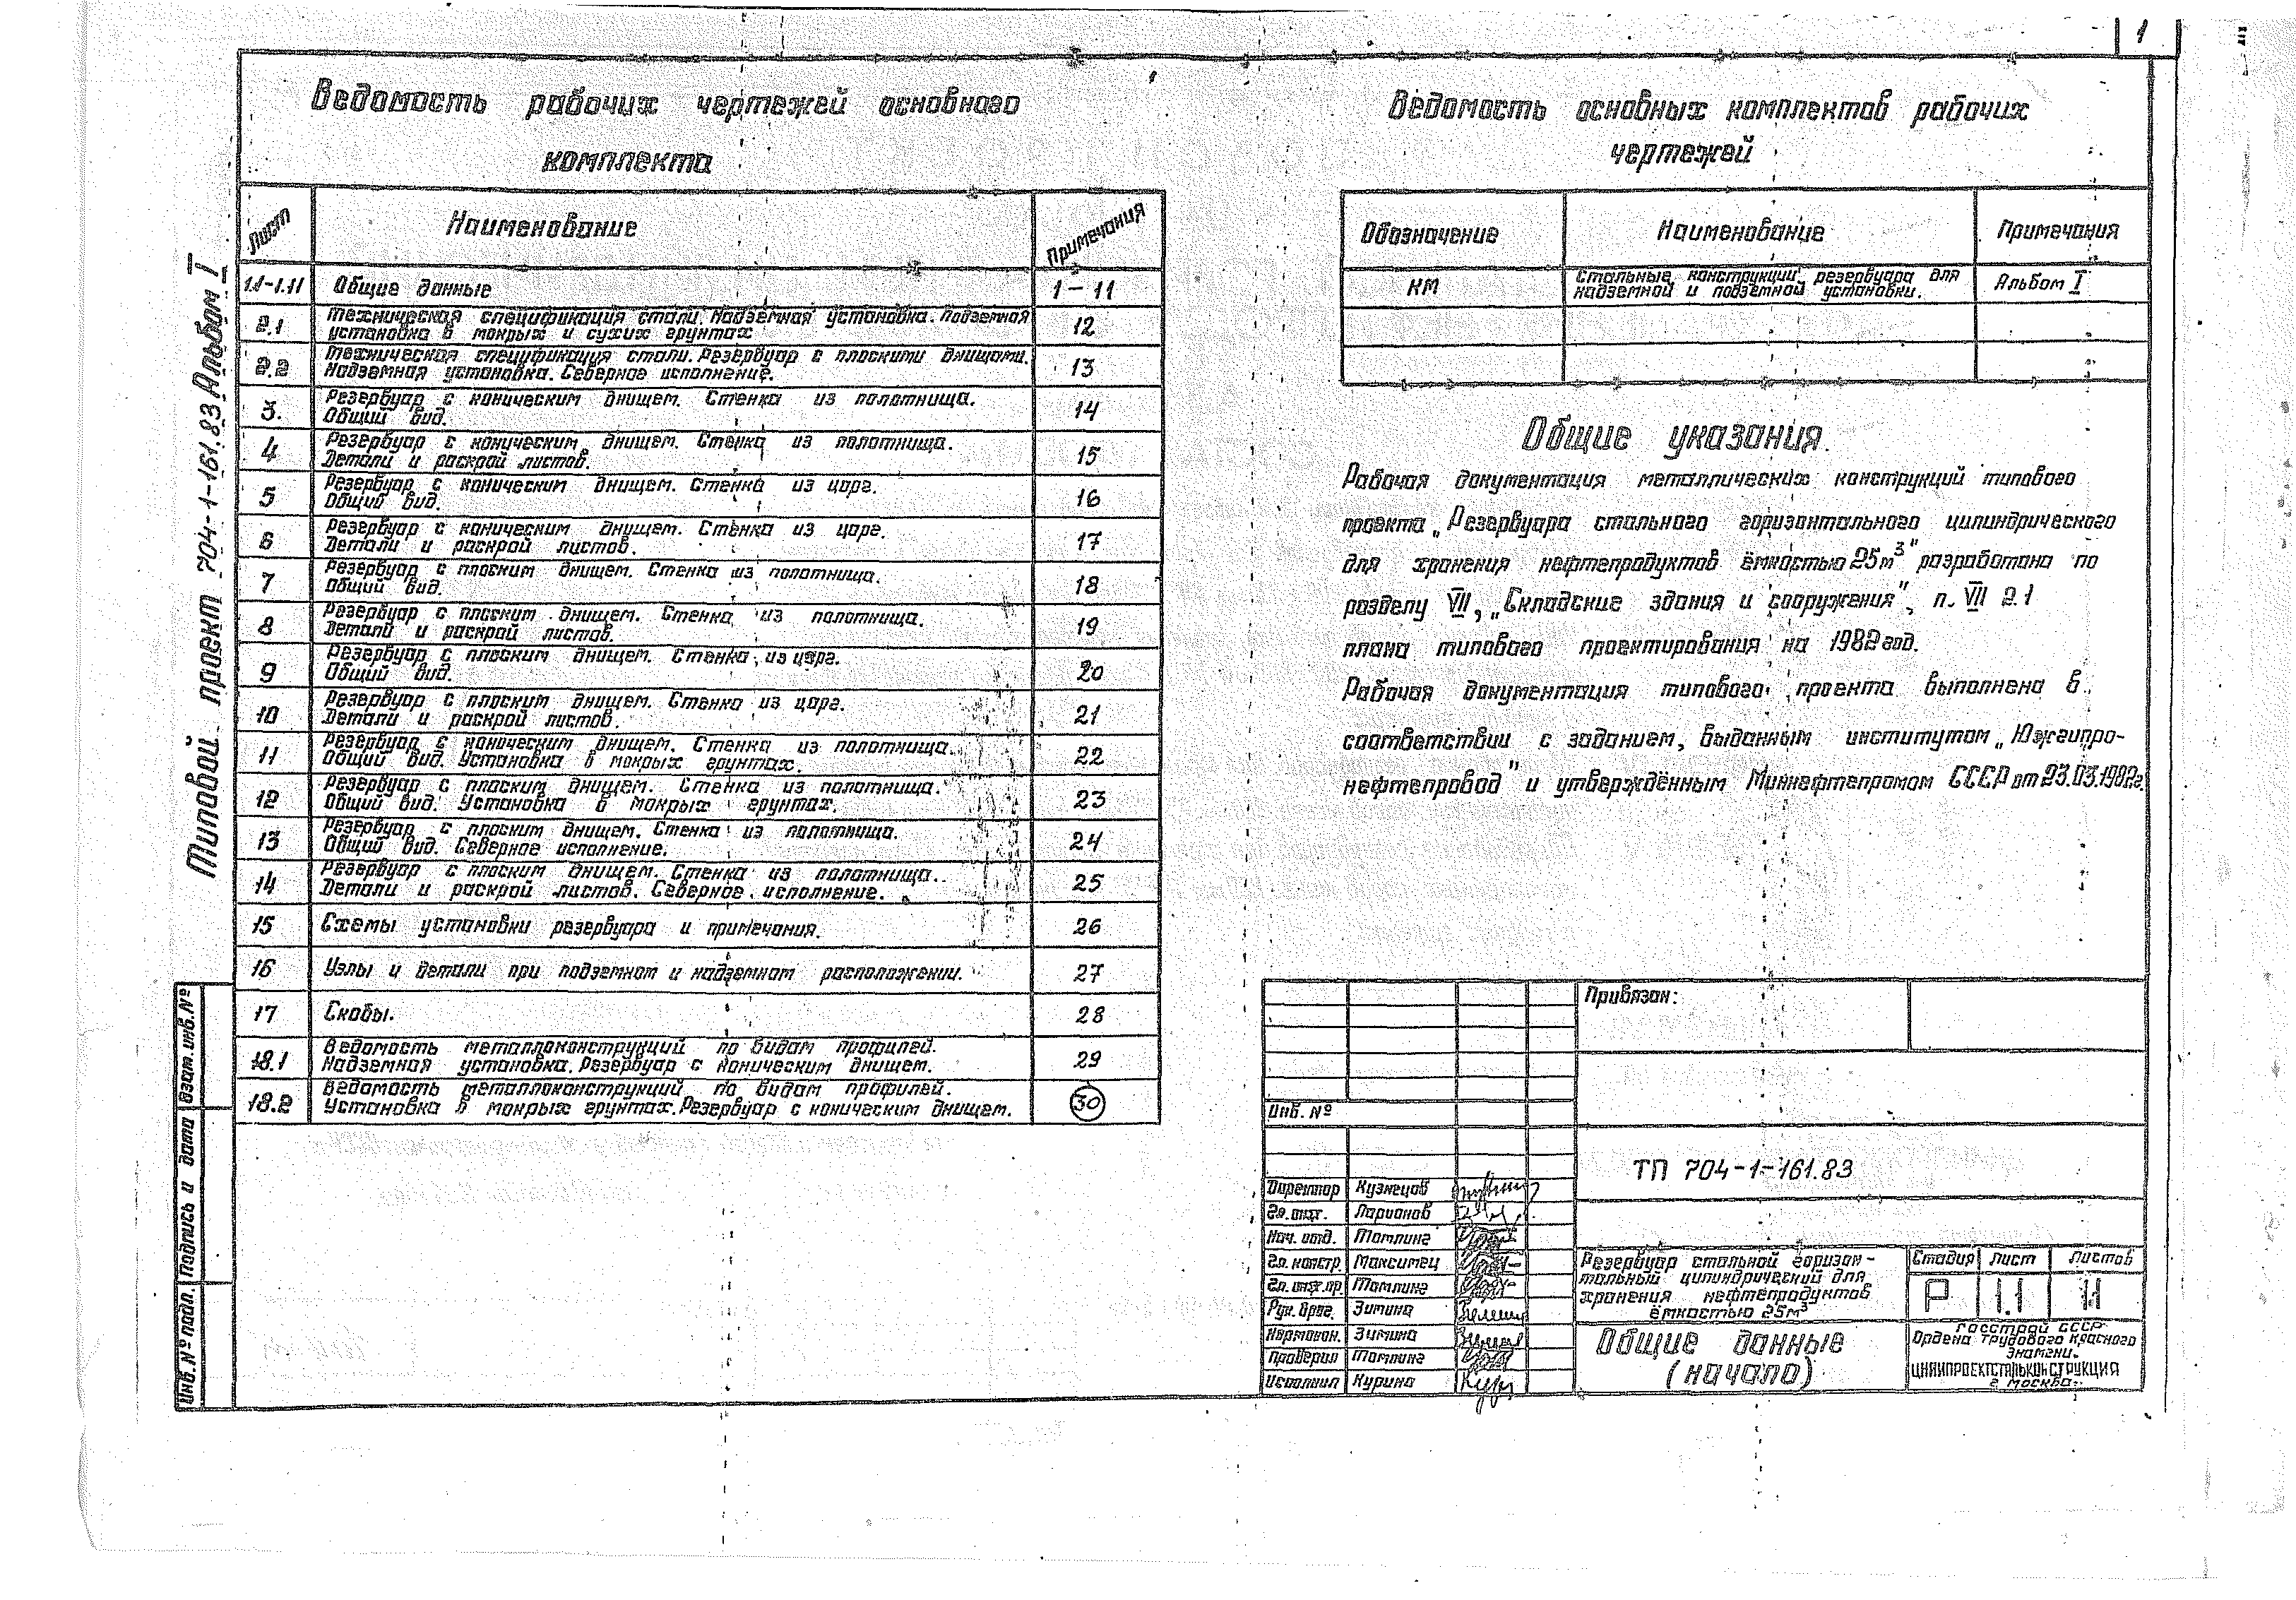 1
Типовой проект 704-1-161.83 Альбом I
Ведомость рабочих чертежей основного
комплекта
Лист Наименование Примечания
1.1-1.11 Общие данные 1-11
2.1 Техническая спецификация стали. Надземная установка. Подземная
установка в мокрых и сухих грунтах 12
2.2 Техническая спецификация стали. Резервуар с плоскими днищами.
Надземная установка. Северное исполнение. 13
3. Резервуар с коническим днищем. Стенка из полотнища.
Общий вид. 14
4 Резервуар с коническим днищем. Стенка из полотнища.
Детали и раскрой листов. 15
5 Резервуар с коническим днищем. Стенка из царг.
Общий вид. 16
6 Резервуар с коническим днищем. Стенка из царг.
Детали и раскрой листов. 17
7 Резервуар с плоским днищем. Стенка из полотнища.
Общий вид. 18
8 Резервуар с плоским днищем. Стенка из полотнища.
Детали и раскрой листов. 19
9 Резервуар с плоским днищем. Стенка из царг.
Общий вид. 20
10 Резервуар с плоским днищем. Стенка из царг.
Детали и раскрой листов. 21
11 Резервуар с коническим днищем. Стенка из полотнища.
Общий вид. Установка в мокрых грунтах. 22
12 Резервуар с плоским днищем. Стенка из полотнища.
Общий вид. Установка в мокрых грунтах. 23
13 Резервуар с плоским днищем. Стенка из полотнища.
Общий вид. Северное исполнение. 24
14 Резервуар с плоским днищем. Стенка из полотнища.
Детали и раскрой листов. Северное исполнение. 25
15 Схемы установки резервуара и примечания. 26
16 Узлы и детали при подземном и надземном расположении. 27
17 Скобы. 28
18.1 Ведомость металлоконструкций по видам профилей.
Надземная установка. Резервуар с коническим днищем. 29
18.2 Ведомость металлоконструкций по видам профилей.
Установка в мокрых грунтах. Резервуар с коническим днищем. 30
Ведомость основных комплектов рабочих
чертежей
Обозначение Наименование Примечания
КМ Стальные конструкции резервуара для
надземной и подземной установки. Альбом I
Общие указания.
Рабочая документация металлических конструкций типового
проекта „Резервуара стального горизонтального цилиндрического
для хранения нефтепродуктов ёмкостью 25м³" разработана по
разделу VII, „Складские здания и сооружения", п. VII 2.1
плана типового проектирования на 1982 год.
Рабочая документация типового проекта выполнена в
соответствии с заданием, выданным институтом „Южгипро-
нефтепровод" и утверждённым Миннефтепромом СССР от 23.03.1982г.
Привязан:
Инв. №
ТП 704-1-161.83
Директор Кузнецов
Гл. инж. Ларионов
Нач. отд. Томлинг
Гл. констр. Максимец
Гл. инж. пр. Томлинг
Рук. бриг. Зимина
Нормокон. Зимина
Проверил Томлинг
Исполнил Курина
Резервуар стальной горизон-
тальный цилиндрический для
хранения нефтепродуктов
ёмкостью 25м³
Стадия Лист Листов
Р 1.1 11
Общие данные
(начало)
Госстрой СССР
Ордена Трудового Красного
Знамени.
ЦНИИПРОЕКТСТАЛЬКОНСТРУКЦИЯ
г. Москва.
Взам. инв. №
Подпись и дата
Инв. № подл.